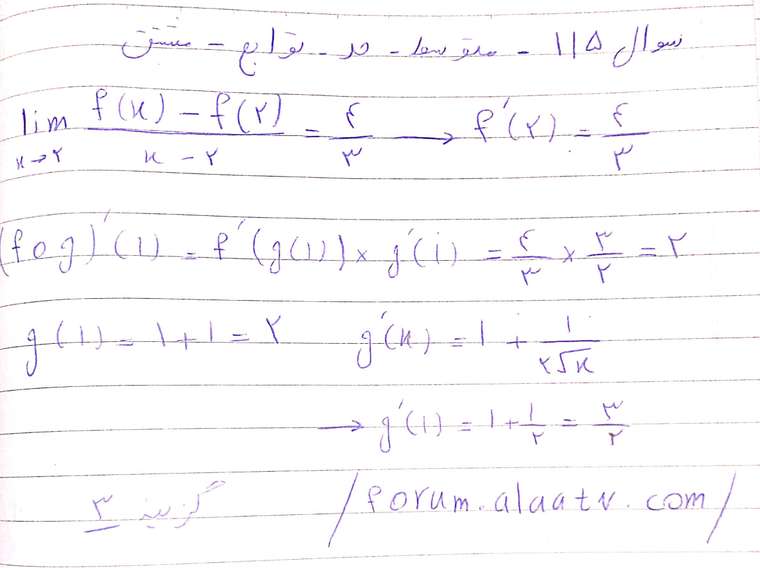 سوال ۱۱۵ - متوسط - حد - توابع - مشتق
lim x→۲ (f(x) - f(۲))/(x - ۲) = ۴/۳ → f'(۲) = ۴/۳
(fog)'(۱) = f'(g(۱)) × g'(۱) = ۴/۳ × ۳/۲ = ۲
g(۱) = ۱ + ۱ = ۲ g'(x) = ۱ + ۱/(۲√x)
→ g'(۱) = ۱ + ۱/۲ = ۳/۲
گزینه ۳ /forum.alaatv.com/